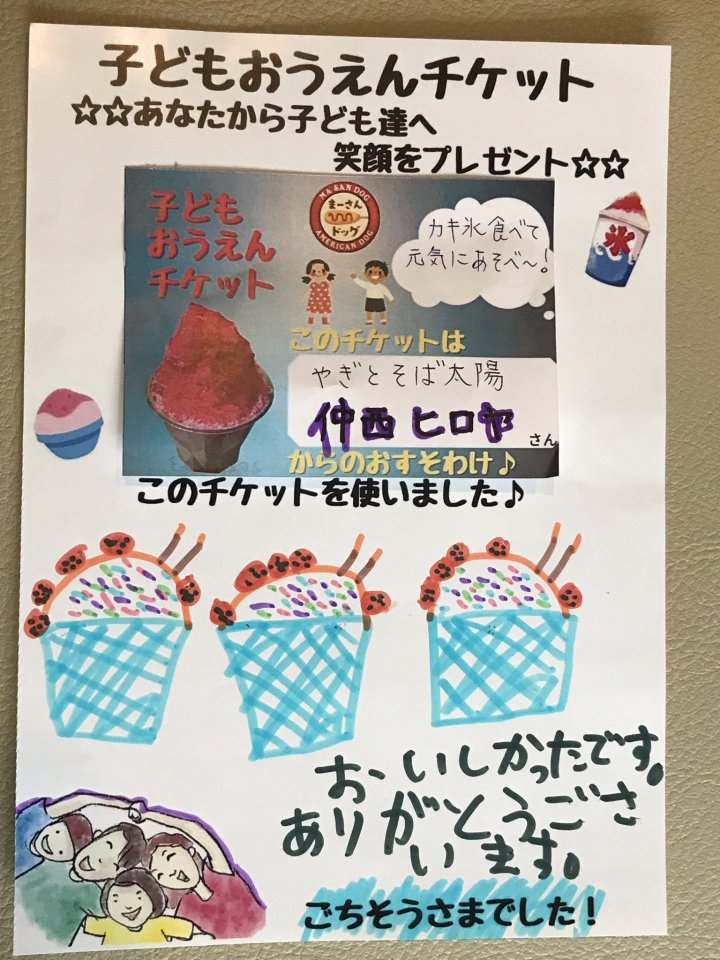 子どもおうえんチケット
☆☆あなたから子ども達へ
笑顔をプレゼント☆☆
子ども
おうえん
チケット
MA SAN DOG
まーさん
ドッグ
AMERICAN DOG
カキ氷食べて
元気にあそべ〜!
氷
このチケットは
やぎとそば太陽
仲西ヒロヤ
さん
からのおすそわけ♪
このチケットを使いました♪
おいしかったです。
ありがとうござ
います。
ごちそうさまでした!